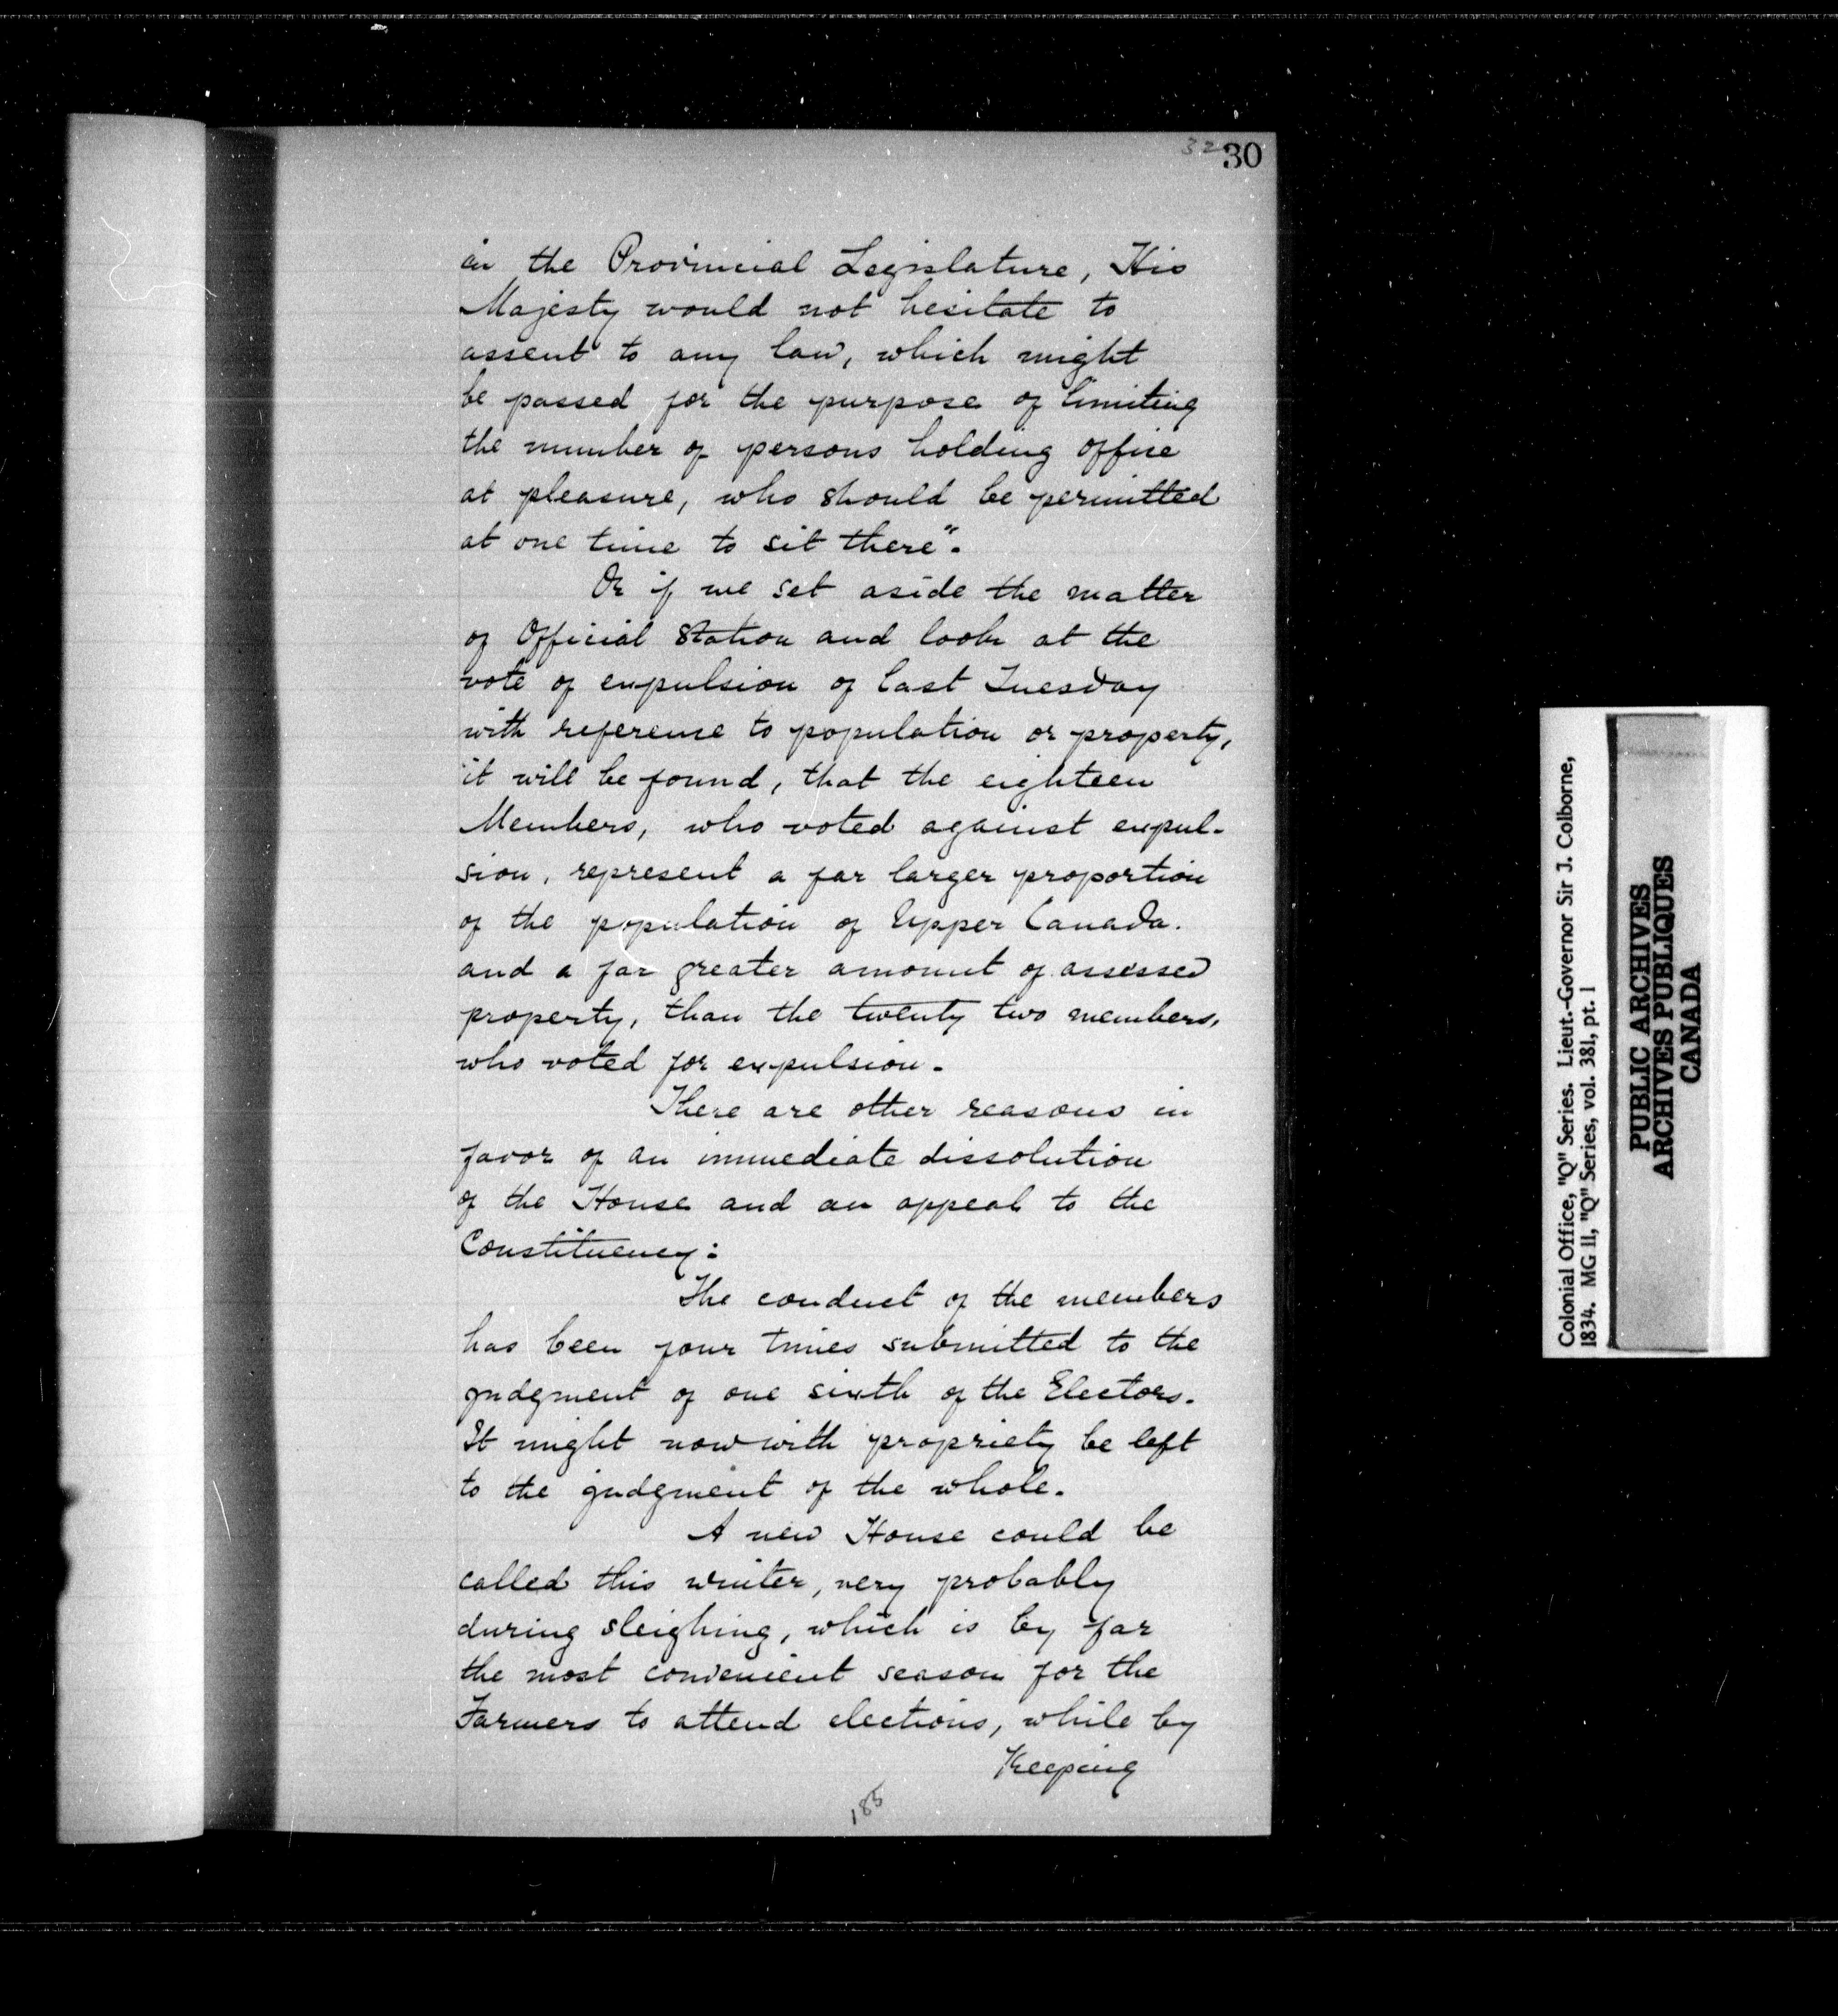 32 30
in the Provincial Legislature, His
Majesty would not hesitate to
assent to any law, which might
be passed for the purpose of limiting
the number of persons holding office
at pleasure, who should be permitted
at one time to sit there".
Or if we set aside the matter
of Official Station and look at the
vote of expulsion of last Tuesday
with reference to population or property,
it will be found, that the eighteen
Members, who voted against expul-
sion, represent a far larger proportion
of the population of Upper Canada.
and a far greater amount of assessed
property, than the twenty two members,
who voted for expulsion.
There are other reasons in
favor of an immediate dissolution
of the House and an appeal to the
Constituency:
The conduct of the members
has been four times submitted to the
judgment of one sixth of the Electors.
It might now with propriety be left
to the judgment of the whole.
A new House could be
called this winter, very probably
during sleighing, which is by far
the most convenient season for the
Farmers to attend elections, while by
Keeping
185
Colonial Office, "Q" Series. Lieut.-Governor Sir J. Colborne,
1834. MG 11, "Q" Series, vol. 381, pt. 1
PUBLIC ARCHIVES
ARCHIVES PUBLIQUES
CANADA